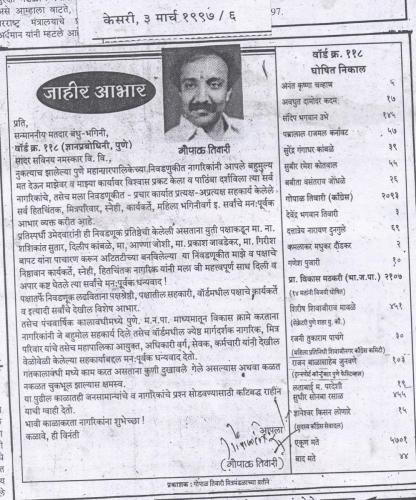 केसरी, ३ मार्च १९९७ / ६
97.
जाहीर आभार
गोपाळ तिवारी
प्रति,
सन्माननीय मतदार बंधु-भगिनी,
वॉर्ड क्र. ११८ (ज्ञानप्रबोधिनी, पुणे)
सादर सविनय नमस्कार वि. वि.,
नुकत्याच झालेल्या पुणे महानगरपालिकेच्या निवडणुकीत नागरिकांनी आपले बहुमुल्य
मत देऊन माझेवर व माझ्या कार्यावर विश्वास प्रकट केला व पाठिंबा दर्शविला त्या सर्व
नागरिकांचे, तसेच मला निवडणुकीत - प्रचार कार्यात प्रत्यक्ष-अप्रत्यक्ष सहकार्य केलेले
सर्व हितचिंतक, मित्रपरिवार, स्नेही, कार्यकर्ते, महिला भगिनीवर्ग इ. सर्वांचे मनःपूर्वक
आभार व्यक्त करीत आहे.
प्रतिस्पर्धी उमेदवारांनी ही निवडणूक प्रतिष्ठेची केलेली असताना युती पक्षाकडून मा. ना.
शशिकांत सुतार, दिलीप कांबळे, मा. आण्णा जोशी, मा. प्रकाश जावडेकर, मा. गिरीश
बापट यांना पाचारण करून अटितटीच्या बनविलेल्या या निवडणूकीत माझे व पक्षाचे
निष्ठावान कार्यकर्ते, स्नेही, हितचिंतक नागरिक यांनी मला जी महत्त्वपूर्ण साथ दिली व
अपार कष्ट घेतले त्या सर्वांचे मनःपूर्वक धन्यवाद !
पक्षातर्फे निवडणूक लढविताना पक्षश्रेष्ठी, पक्षातील सहकारी, वॉर्डमधील पक्षाचे कार्यकर्ते
व इत्यादी सर्वांचे देखील विशेष आभार.
तसेच पंचवार्षिक कालावधीमध्ये पुणे. म.न.पा. माध्यमातून विकास कामे करताना
नागरिकांनी जे बहुमोल सहकार्य दिले तसेच वॉर्डमधील ज्येष्ठ मार्गदर्शक नागरिक, मित्र
परिवार यांचे तसेच महापालिका आयुक्त, अधिकारी वर्ग, सेवक, कर्मचारी यांनी देखील
वेळोवेळी केलेल्या सहकार्याबद्दल मनःपूर्वक धन्यवाद देतो.
गतकालावधी मध्ये काम करत असताना कुणी दुखावले गेले असल्यास अथवा कळत
नकळत चुकभूल झाल्यास क्षमस्व.
या पुढील काळातही जनसामान्यांचे व नागरिकांचे प्रश्न सोडवण्यासाठी कटिबद्ध राहीन
याची ग्वाही देतो.
भावी काळाकरता नागरिकांना शुभेच्छा !
कळावे, ही विनंती
आपला
(गोपाळ तिवारी)
वॉर्ड क्र. ११८
घोषित निकाल
अनंत कृष्णा चव्हाण ५
अवधुत दामोदर कदम १७
संदिप भगवान ढमे १४५
पन्नालाल राजमल कर्नावट ५७
सुरेंद्र गंगाधर कांबळे ३९
सुधीर रमेश कोतवाल ५५
बबीता वसंतराव जोंधळे २६
गोपाळ तिवारी (काँग्रेस) २०९३
देवेंद्र भगवान तिवारी ३
दत्तात्रेय नारायण दुनगुले ६९
कमलाकर मधुकर दौंडकर २
गणेश पुजारी १०
प्रा. विकास मठकरी (भा.ज.पा.) २१०७
शिरीष शिवाजीराव मावळे ४५१
रजनी तुकाराम पाचंगे ३०
राजन बाळासाहेब जुनवणे १०३
लताबाई म. परदेशी १९
सुधीर सोनबा रसाळ ४५५
ज्ञानेश्वर किसन लोणारे १५
एकूण मते ५७०१
बाद मते ४४
प्रकाशक : गोपाळ तिवारी मित्रमंडळाच्या वतीने